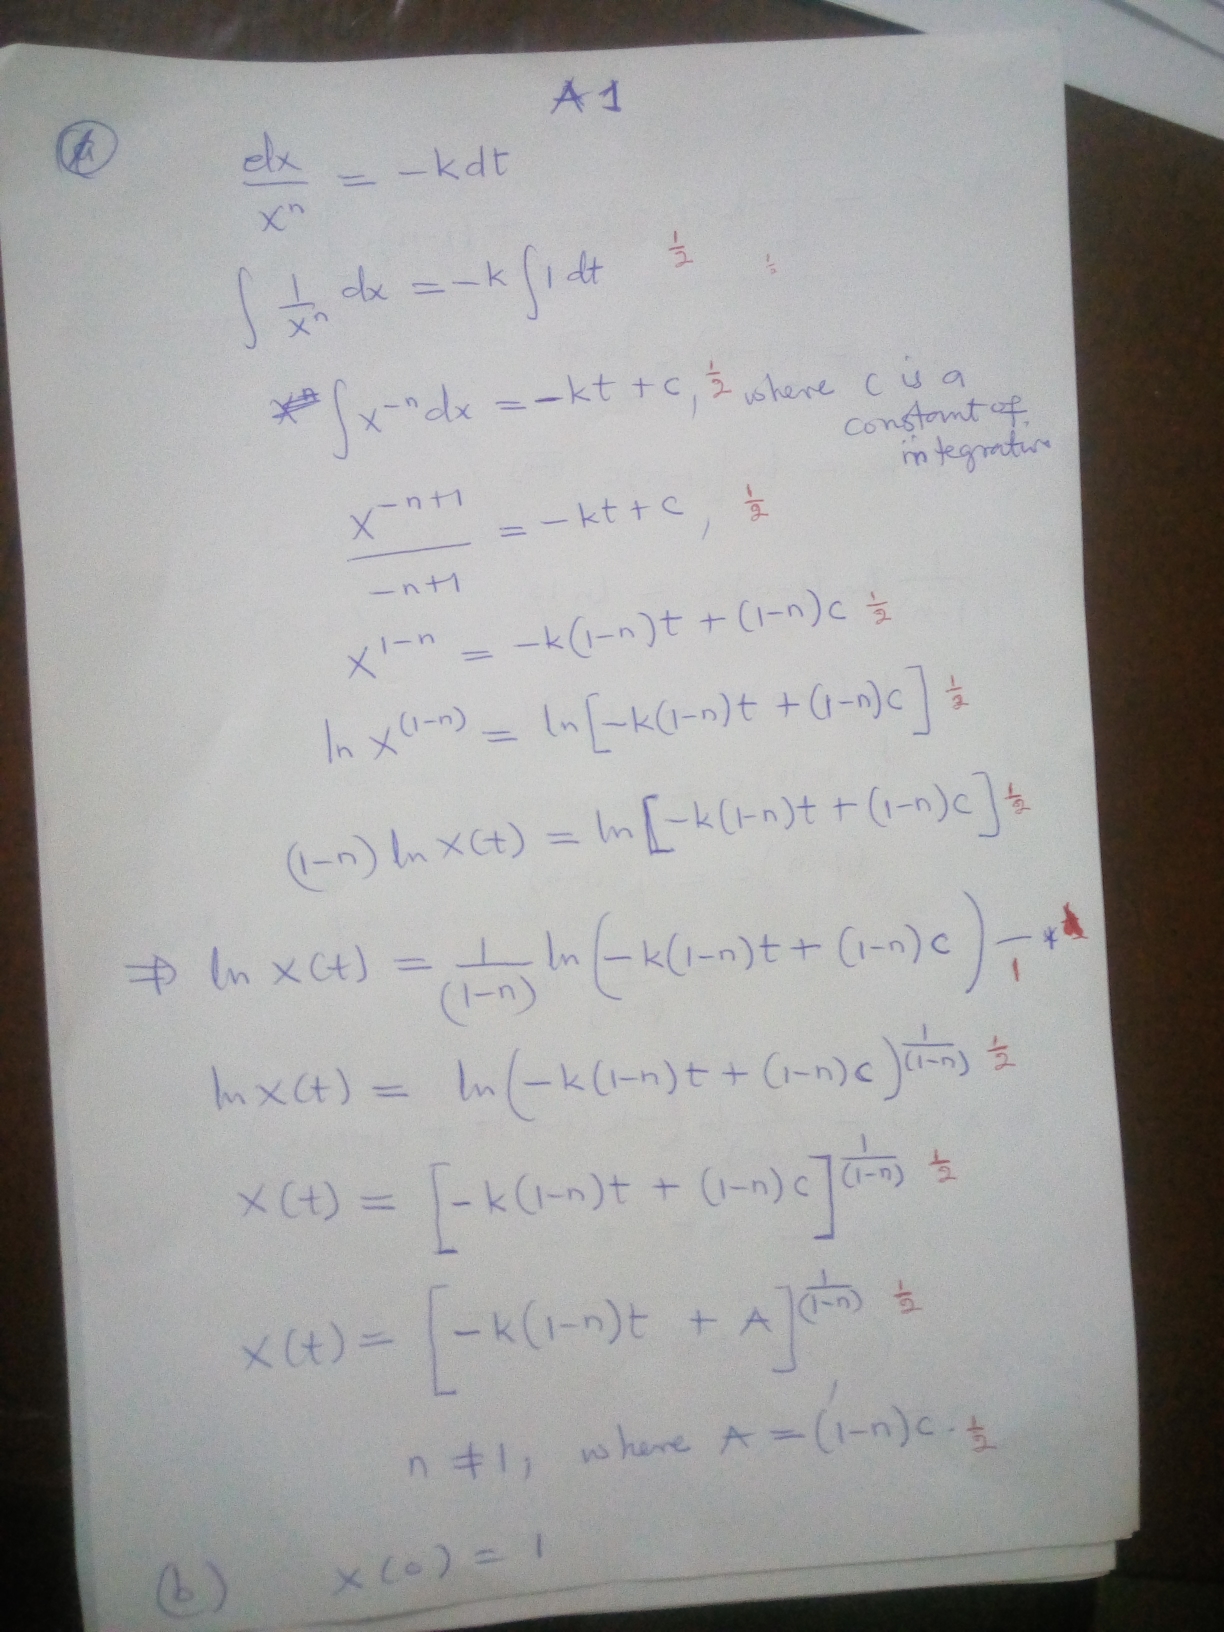 A1
(a)
dx/xⁿ = -kdt
∫ 1/xⁿ dx = -k ∫ 1 dt 1/2 1/2
∫ x⁻ⁿ dx = -kt + c, 1/2 where c is a
constant of
integration
x^(-n+1)/(-n+1) = -kt + c, 1/2
x^(1-n) = -k(1-n)t + (1-n)c 1/2
ln x^((1-n)) = ln[-k(1-n)t + (1-n)c] 1/2
(1-n) ln x(t) = ln[-k(1-n)t + (1-n)c] 1/2
⇒ ln x(t) = 1/(1-n) ln(-k(1-n)t + (1-n)c) — * 1
ln x(t) = ln(-k(1-n)t + (1-n)c)^(1/(1-n)) 1/2
x(t) = [-k(1-n)t + (1-n)c]^(1/(1-n)) 1/2
x(t) = [-k(1-n)t + A]^(1/(1-n)) 1/2
n ≠ 1, where A = (1-n)c. 1/2
(b) x(0) = 1